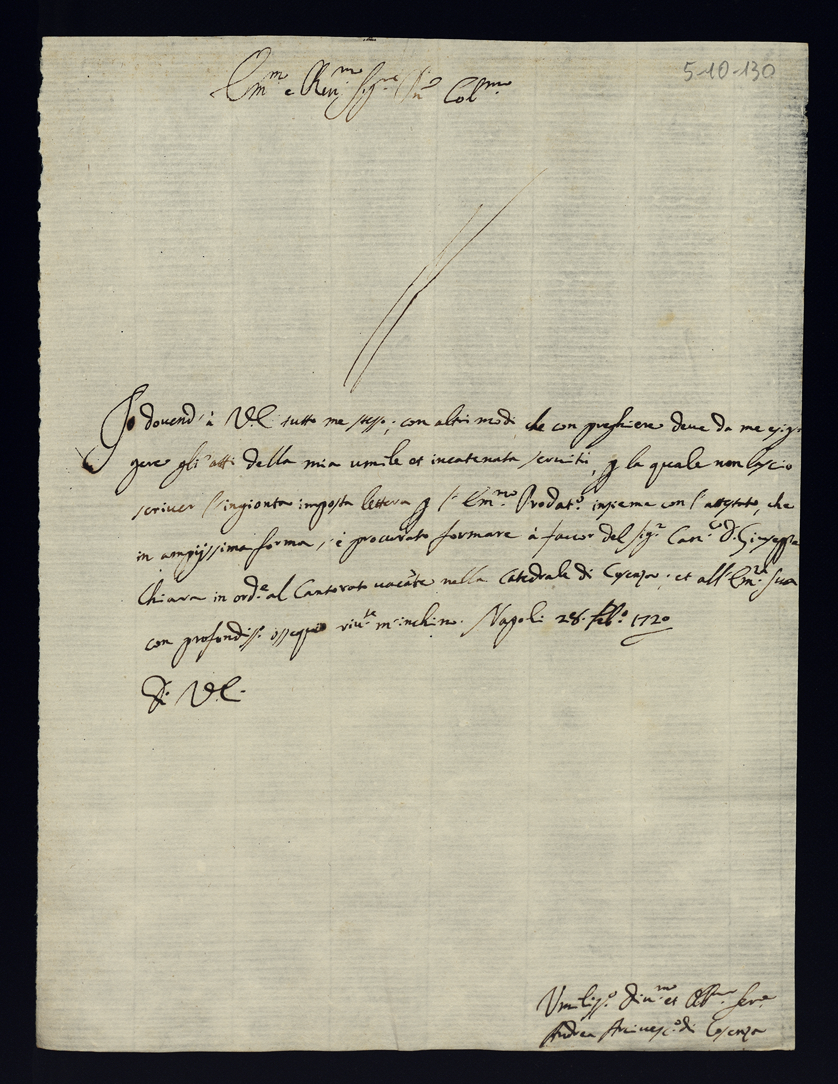 5-10-130
Em.mo e Rev.mo Sig.re Sig.re Col.mo
Io dovend'à V.E. tutto me stesso, con altri modi, che con preghiere deve da me esig-
gere gli atti della mia umile et incatenata servitù, p la quale non lascio
scriver l'ingionta imposta lettera p l'Em.mo Prodat.o insieme con l'attestato, che
in ampijssima forma, s'è procurato formare à favor del Sig.r Can.co D. Giuseppe
Chiara in ord.e al Cantorato vacāte nella Catedrale di Cosenza; et all'Em.za Sua
con profondiss.o ossequio riv.te m'inchino. Napoli 28. feb.o 1720
Di V.E.
Umiliss.o Div.mo et Obb.mo Ser.e
Andrea Arcivesc.o di Cosenza